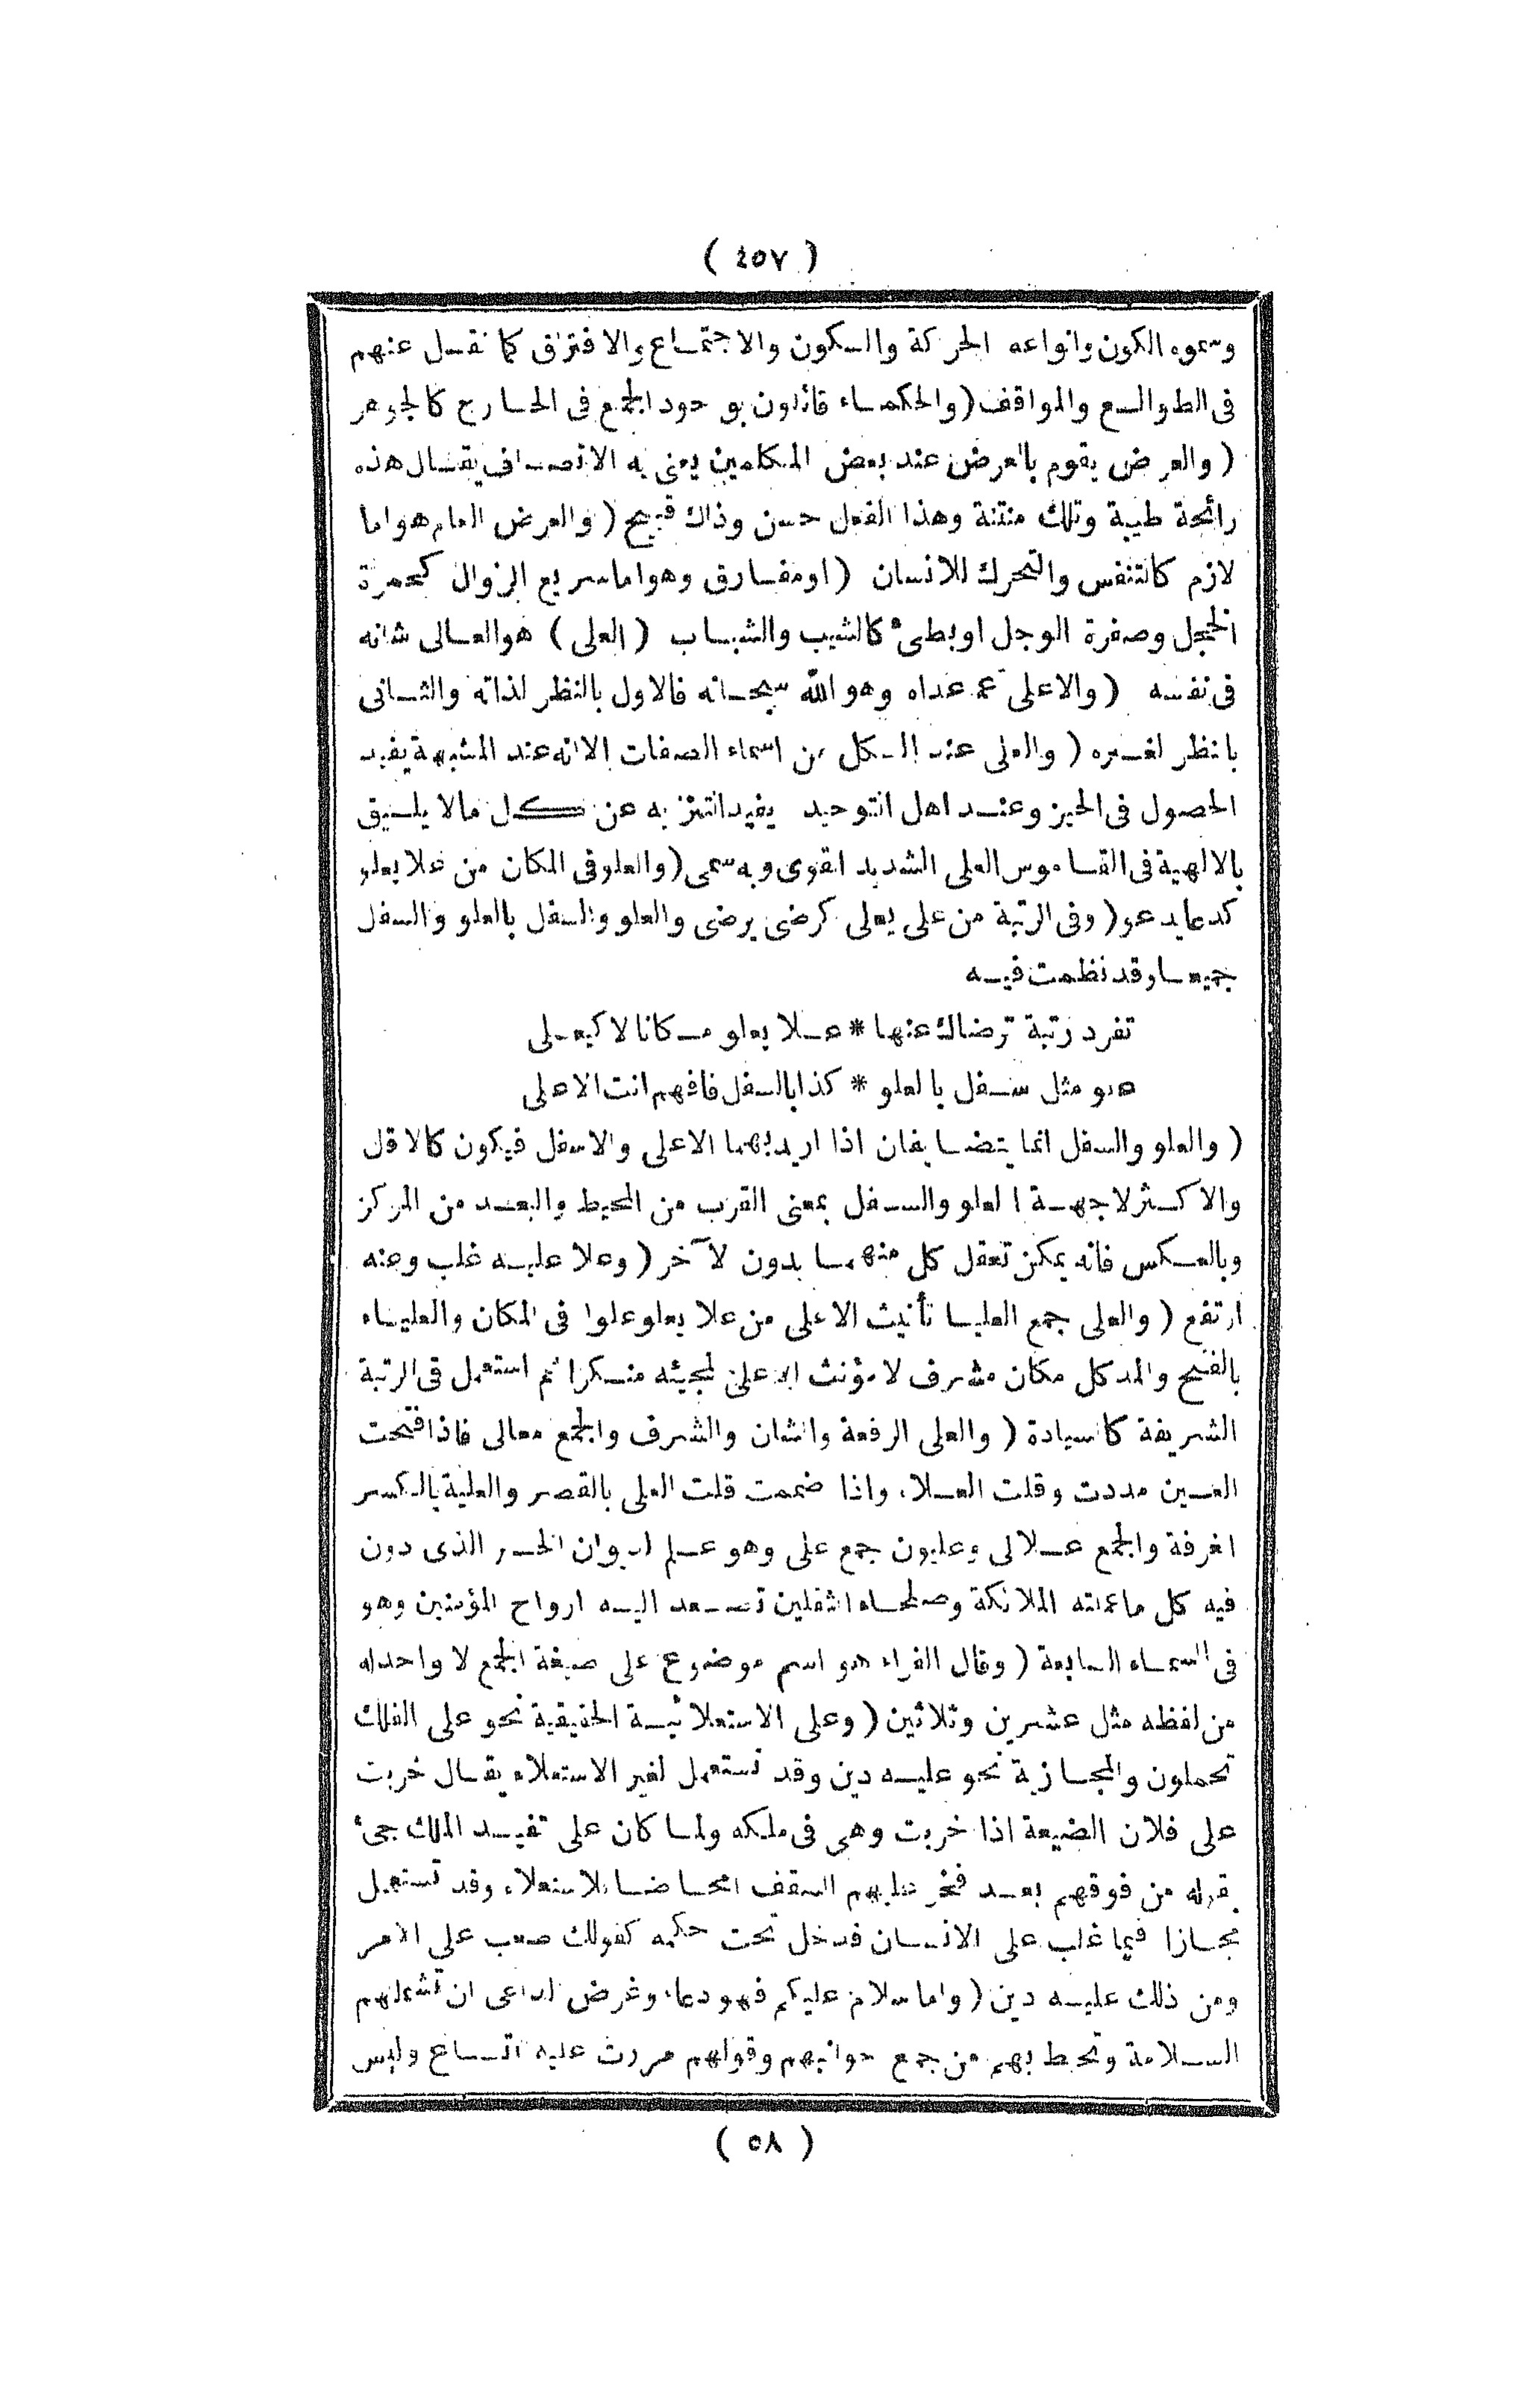 ( ٤٥٧ )
وسموه الكون وانواعه الحركة والسكون والاجتماع والافتراق كما نقل عنهم
فى الطوالع والمواقف (والحكماء قائلون بوجود الجمع فى الخارج كالجوهر
( والعرض يقوم بالعرض عند بعض المتكلمين يعنى به الاتصاف يقال هذه
رائحة طيبة وتلك منتنة وهذا الفعل حسن وذاك قبيح ( والعرض العام هو اما
لازم كالتنفس والتحرك للانسان ( او مفارق وهو اما سريع الزوال كحمرة
الخجل وصفرة الوجل او بطىء كالشيب والشباب ( العلى ) هو العالى شانه
فى نفسه ( والاعلى عما عداه وهو الله سبحانه فالاول بالنظر لذاته والثانى
بالنظر لغيره ( والعلى عند الكل من اسماء الصفات الا انه عند المشبهة يفيد
الحصول فى الحيز وعند اهل التوحيد يفيد التنزيه عن كل مالا يليق
بالالهية فى القاموس العلى الشديد القوى وبه سمى ( والعلو فى المكان من علا يعلو
كدعا يدعو ( وفى الرتبة من على يعلى كرضى يرضى والعلو والسفل بالعلو والسفل
جميعا وقد نظمت فيه
تفرد رتبة ترضاك عنها * علا يعلو مكانا لا كيعلى
علو مثل سفل بالعلو * كذا بالسفل فافهم انت الاعلى
( والعلو والسفل انما يتضايفان اذا اريد بهما الاعلى والاسفل فيكون كالاقل
والاكثر لا جهة العلو والسفل بمعنى القرب من المحيط والبعد من المركز
وبالعكس فانه يمكن تعقل كل منهما بدون لآخر ( وعلا عليه غلب وعنه
ارتفع ( والعلى جمع العليا تأنيث الاعلى من علا يعلو علوا فى المكان والعلياء
بالفتح والمد كل مكان مشرف لا مؤنث الاعلى لمجيئه منكرا ثم استعمل فى الرتبة
الشريفة كالسيادة ( والعلى الرفعة والشان والشرف والجمع معالى فاذا فتحت
العين مددت وقلت العلاء واذا ضممت قلت العلى بالقصر والعلية بالكسر
الغرفة والجمع علالى وعليون جمع على وهو علم لديوان الخير الذى دون
فيه كل ما عملته الملائكة وصلحاء الثقلين تصعد اليه ارواح المؤمنين وهو
فى السماء السابعة ( وقال الفراء هو اسم موضوع على صيغة الجمع لا واحد له
من لفظه مثل عشرين وثلاثين ( وعلى الاستعلائية الحقيقية نحو على الفلك
تحملون والمجازية نحو عليه دين وقد تستعمل لغير الاستعلاء يقال خربت
على فلان الضيعة اذا خربت وهى فى ملكه ولما كان على تفيد الملك جىء
بقوله من فوقهم بعد فخر عليهم السقف امحاضا للاستعلاء وقد تستعمل
مجازا فيما غلب على الانسان فدخل تحت حكمه كقولك صعب على الامر
ومن ذلك عليه دين ( واما سلام عليكم فهو دعاء وغرض الداعى ان تشملهم
السلامة وتحيط بهم من جمع جوانبهم وقولهم مررت عليه اتساع وليس
( ٥٨ )